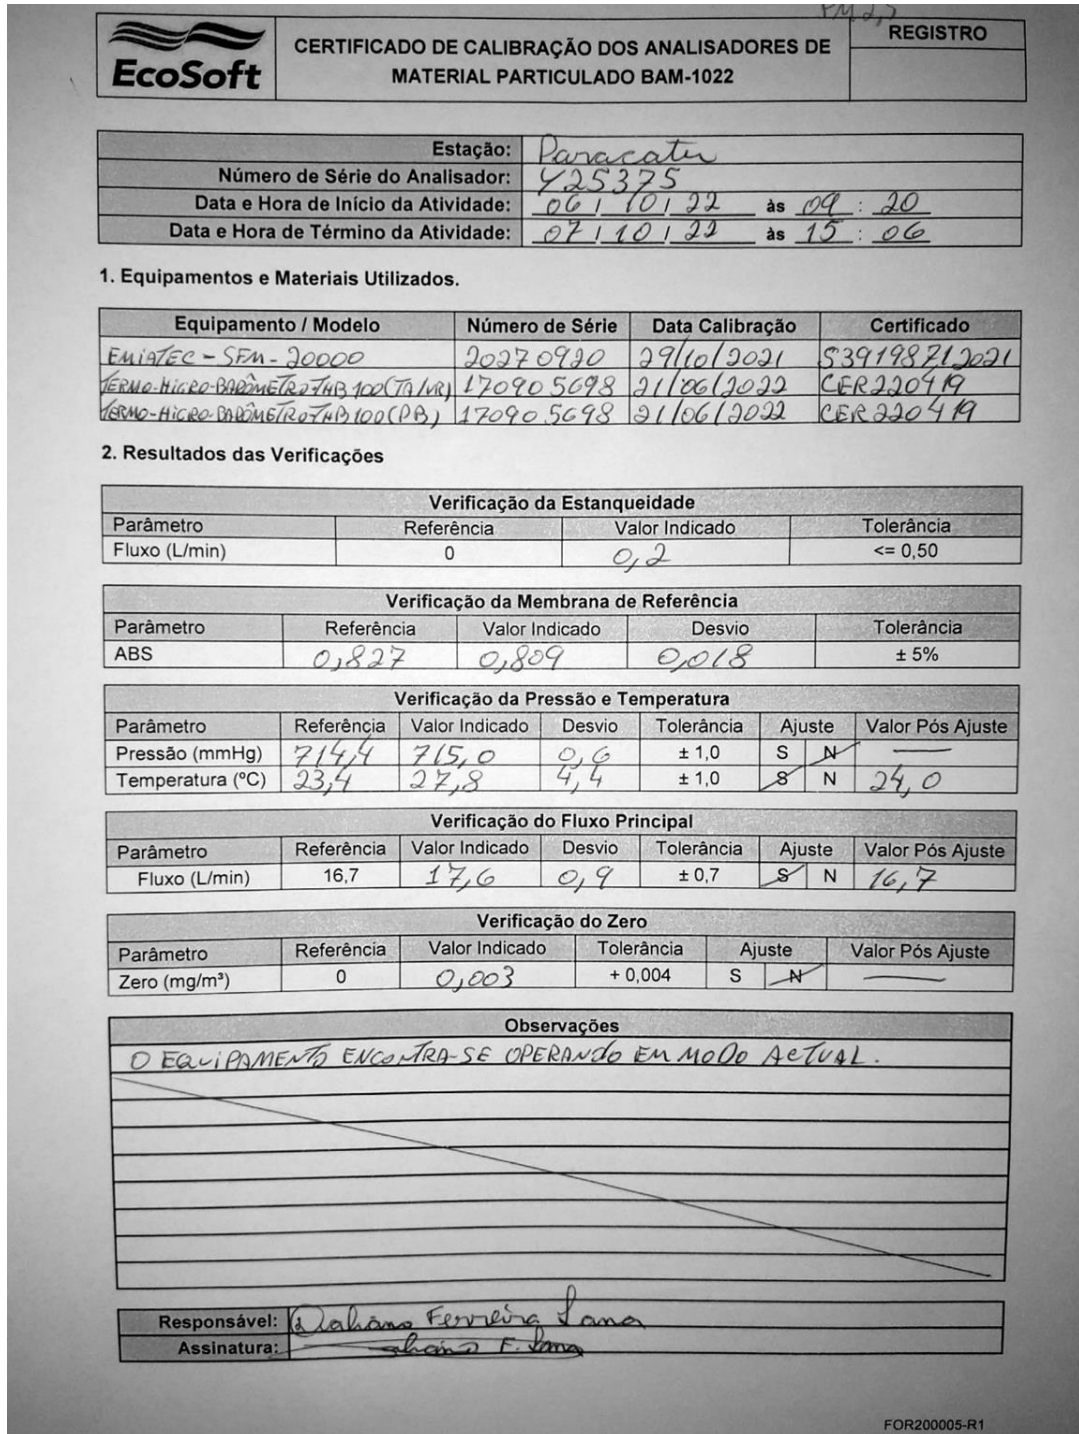 PM2,5
EcoSoft
CERTIFICADO DE CALIBRAÇÃO DOS ANALISADORES DE
MATERIAL PARTICULADO BAM-1022
REGISTRO
Estação: Paracatu
Número de Série do Analisador: Y25375
Data e Hora de Início da Atividade: 06/10/22 às 09:20
Data e Hora de Término da Atividade: 07/10/22 às 15:06
1. Equipamentos e Materiais Utilizados.
Equipamento / Modelo Número de Série Data Calibração Certificado
EMIATEC - SFM - 20000 20270920 29/10/2021 S39198712021
TERMO-HIGRO-BARÔMETRO THB 100 (TA/UR) 170905698 21/06/2022 CER220419
TERMO-HIGRO-BARÔMETRO THB 100 (PB) 170905698 21/06/2022 CER220419
2. Resultados das Verificações
Verificação da Estanqueidade
Parâmetro Referência Valor Indicado Tolerância
Fluxo (L/min) 0 0,2 <= 0,50
Verificação da Membrana de Referência
Parâmetro Referência Valor Indicado Desvio Tolerância
ABS 0,827 0,809 0,018 ± 5%
Verificação da Pressão e Temperatura
Parâmetro Referência Valor Indicado Desvio Tolerância Ajuste Valor Pós Ajuste
Pressão (mmHg) 714,4 715,0 0,6 ± 1,0 S N —
Temperatura (ºC) 23,4 27,8 4,4 ± 1,0 S N 24,0
Verificação do Fluxo Principal
Parâmetro Referência Valor Indicado Desvio Tolerância Ajuste Valor Pós Ajuste
Fluxo (L/min) 16,7 17,6 0,9 ± 0,7 S N 16,7
Verificação do Zero
Parâmetro Referência Valor Indicado Tolerância Ajuste Valor Pós Ajuste
Zero (mg/m³) 0 0,003 + 0,004 S N —
Observações
O EQUIPAMENTO ENCONTRA-SE OPERANDO EM MODO ACTUAL.
Responsável: Ferreira Lana
Assinatura: F. Lana
FOR200005-R1